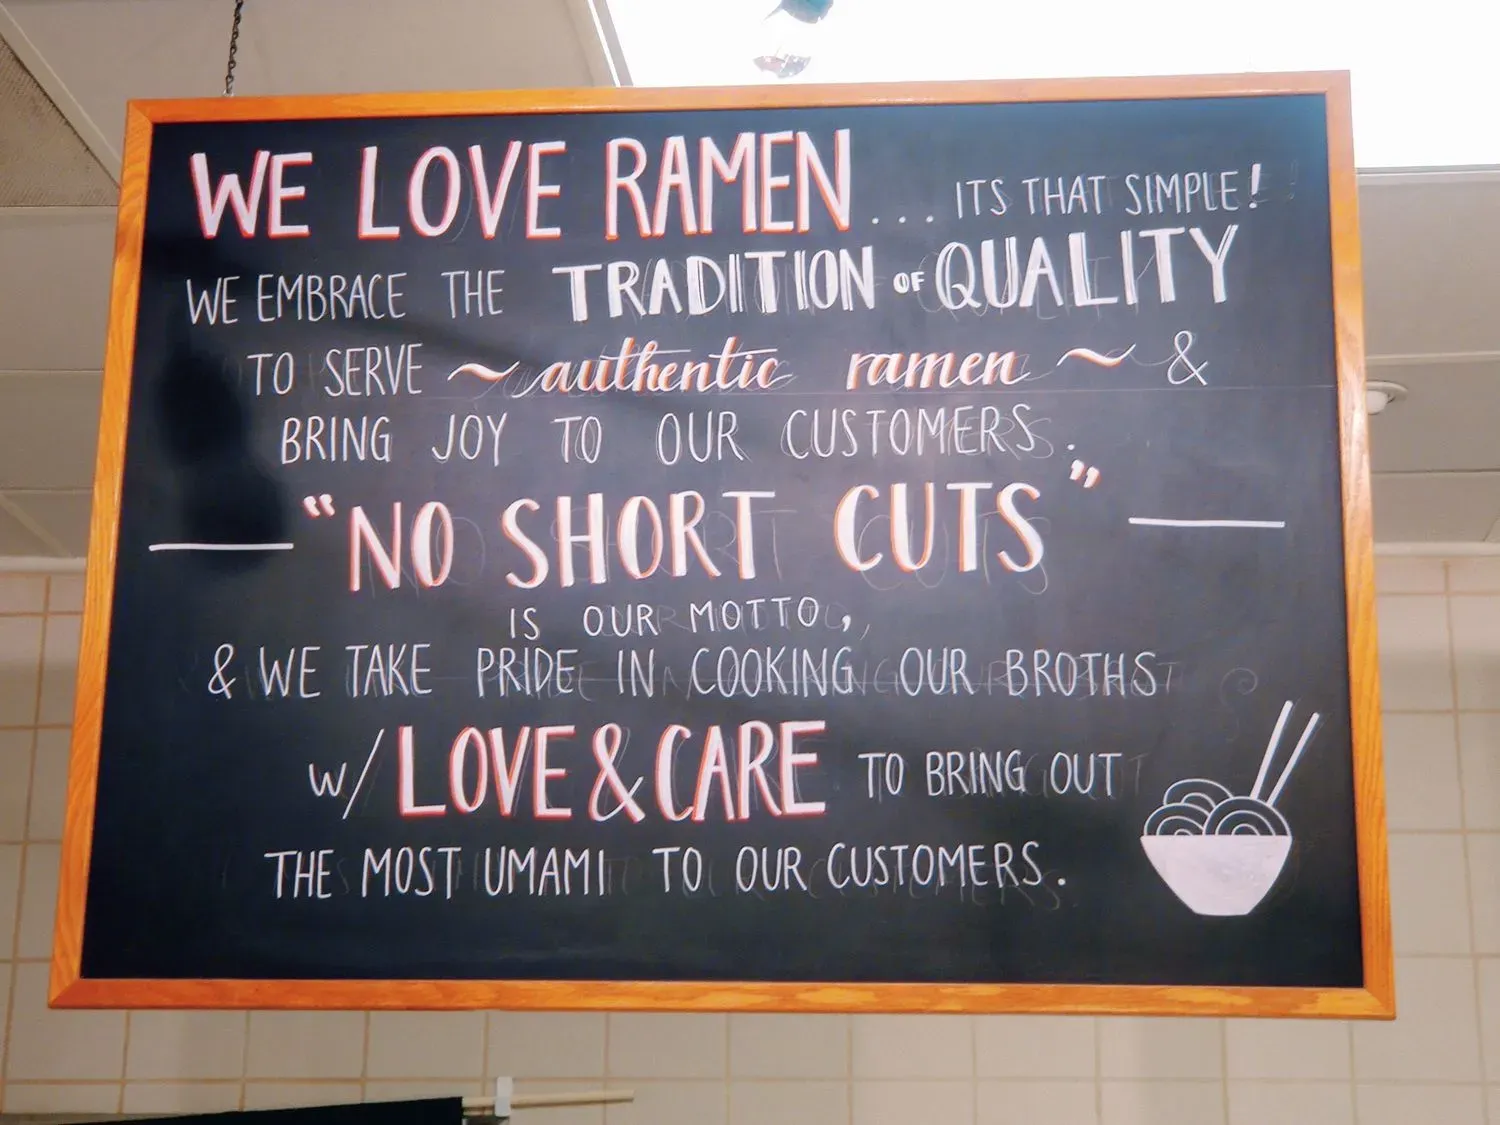 WE LOVE RAMEN... ITS THAT SIMPLE!
WE EMBRACE THE TRADITION OF QUALITY
TO SERVE ~ authentic ramen ~ &
BRING JOY TO OUR CUSTOMERS.
— "NO SHORT CUTS" —
IS OUR MOTTO,
& WE TAKE PRIDE IN COOKING OUR BROTHS
W/ LOVE & CARE TO BRING OUT
THE MOST UMAMI TO OUR CUSTOMERS.